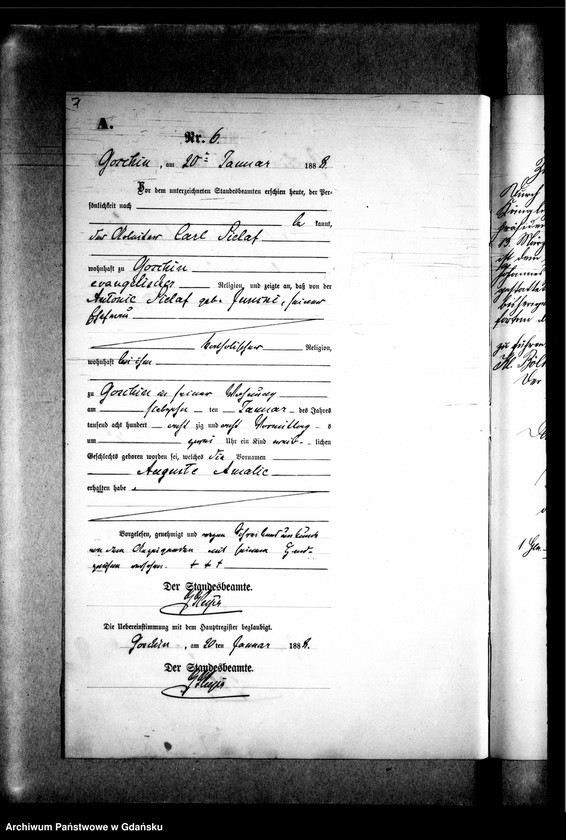 7
A.
Nr. 6.
Goschin, am 20ten Januar 1888.
Vor dem unterzeichneten Standesbeamten erschien heute, der Per-
sönlichkeit nach
be kannt,
der Arbeiter Carl Sielaf
wohnhaft zu Goschin
evangelischer Religion, und zeigte an, daß von der
Antonie Sielaf geb. seiner
Ehefrau
katholischer Religion,
wohnhaft bei ihm
zu Goschin in seiner Wohnung
am siebzehn ten Januar des Jahres
tausend acht hundert acht zig und acht Vormittag s
um zwei Uhr ein Kind weib- lichen
Geschlechts geboren worden sei, welches die Vornamen
Auguste Amalie
erhalten habe.
Vorgelesen, genehmigt und wegen Schreibensunkunde
von dem Anzeigenden mit seinem Hand-
zeichen versehen. + + +
Der Standesbeamte.
Die Uebereinstimmung mit dem Hauptregister beglaubigt.
Goschin, am 20 ten Januar 1888.
Der Standesbeamte.
durch
ist dem
zu führen
Der
Archiwum Państwowe w Gdańsku